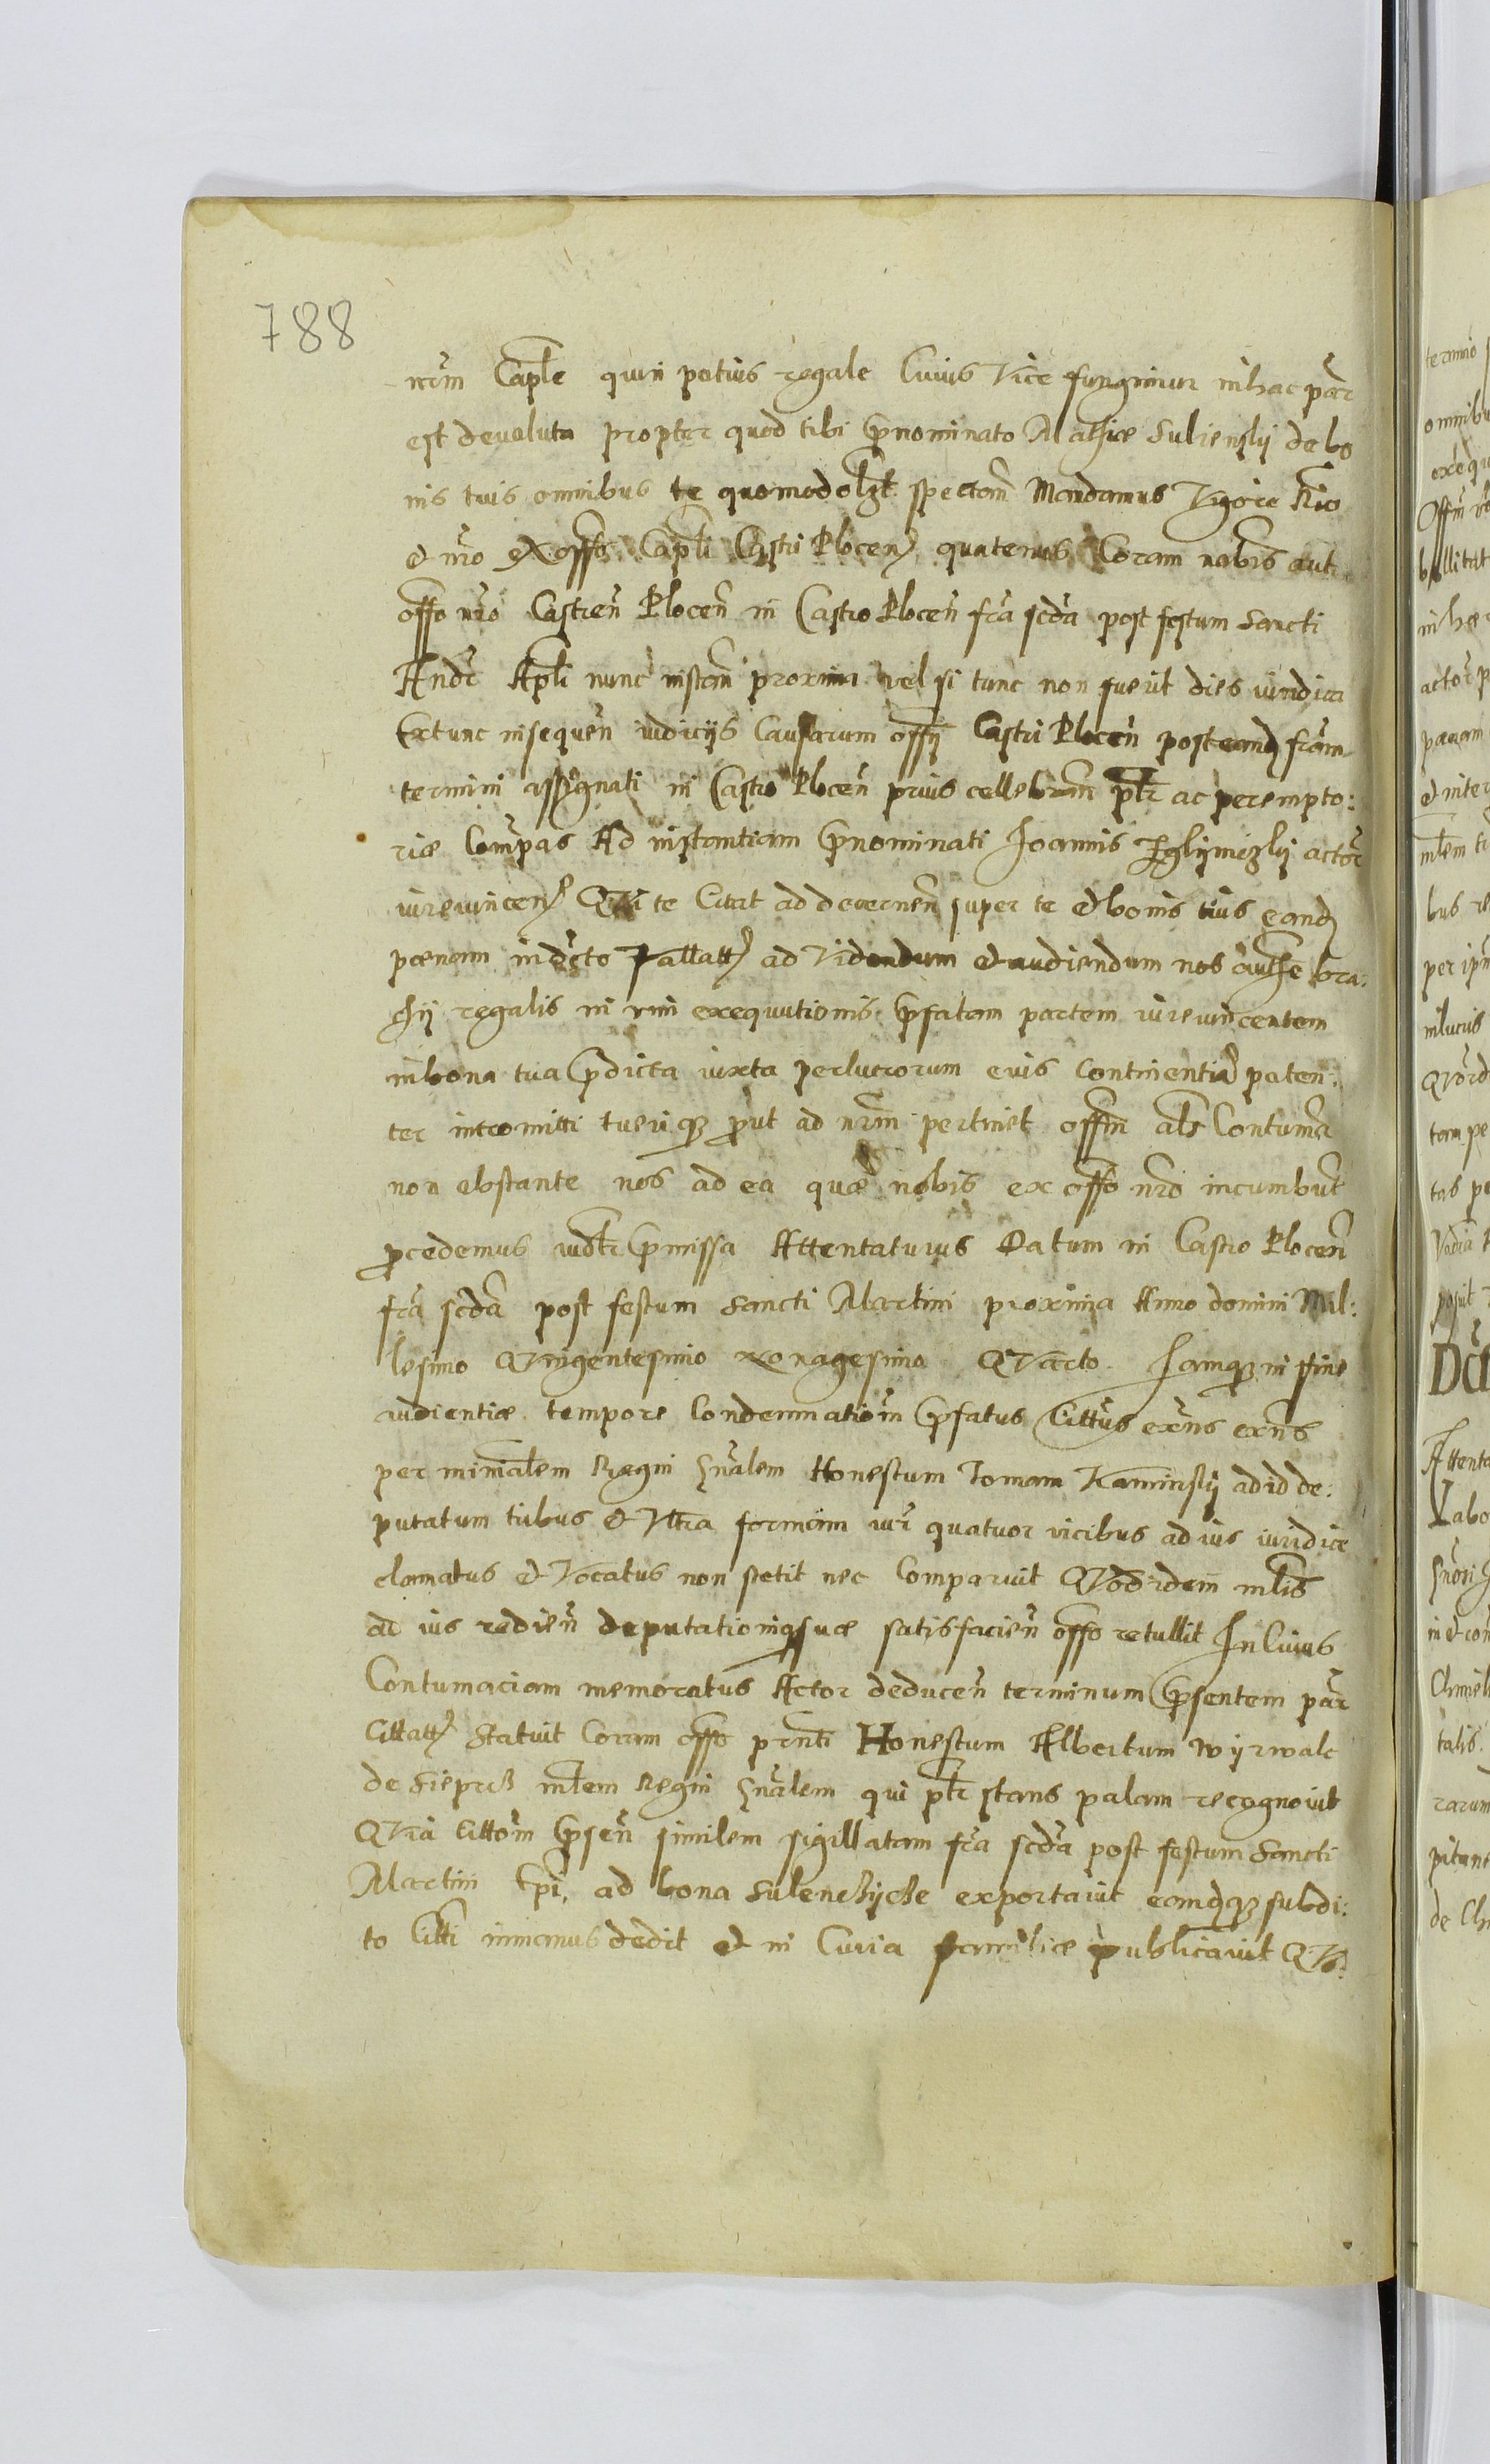 788
nrm Caple quin potius regale Cuius Vice fungimur inhac par
est devoluta propter quod tibi Prnominato Mathiæ Sulienskij de bo
nis tuis omnibus te quomodolzt spectan Mandamus Vigore
et nro ex offo Capli Castri Plocen quatenus Coram nobis aut
offo nro Castren Plocen in Castro Plocen fra scda post festum Sancti
Andr Apli nunc instan proxima vel si tunc non fuerit dies iuridica
Extunc insequen iudicijs Causarum offij Castri Plocen post eand fram
termini assignati in Castro Plocen prius cellebran ptr ac perempto:
riæ Compas Ad instantiam Prnominati Joannis actor
iurevincen Qui te Citat ad decernen super te et bonis tuis eand
pænam indicto ad Videndum et audiendum nos authe bra:
chij regalis in vim exequutionis Prfatam partem iurevincentem
in bona tua Prdicta iuxta perlucrorum eius Continentia paten:
ter intromitti tueri qz prout ad nrm pertinet offm als Contuma
non obstante nos ad ea quæ nobis ex offo nro incumbut
procedemus iudtr Prmissa Attentaturus Datum in Castro Plocen
fra scda post festum Sancti Martini proxima Anno domini Mil:
lesimo Quingentesimo Nonagesimo Quarto. Jamqz in fine
audientiæ tempore Condemnation Prfatus Cittus exns exns
per minialem Regni Gnalem Honestum Tomam Kaminskij ad id de:
putatum tribus et Vltra formam iur quatuor vicibus ad ius iuridice
clamatus et Vocatus non stetit nec Comparuit Quod idem mlis
ad ius redien deputationiqz suæ satisfacien offo retullit In Cuius
Contumaciam memoratus Actor deducen terminum Prsentem par
Cittatt Statuit Coram offo prnti Honestum Albertum Wyrwalc
de Sieprcz mlem Regni Gnalem qui ptr stans palam recognovit
Quia Cittom Prsen similem sigillatam fra scda post festum Sancti
Martini Epi, ad bona Sulenczijcze exportavit eamqz subdi:
to Citti inmanus dedit et in Curia familiæ publicavit Qu